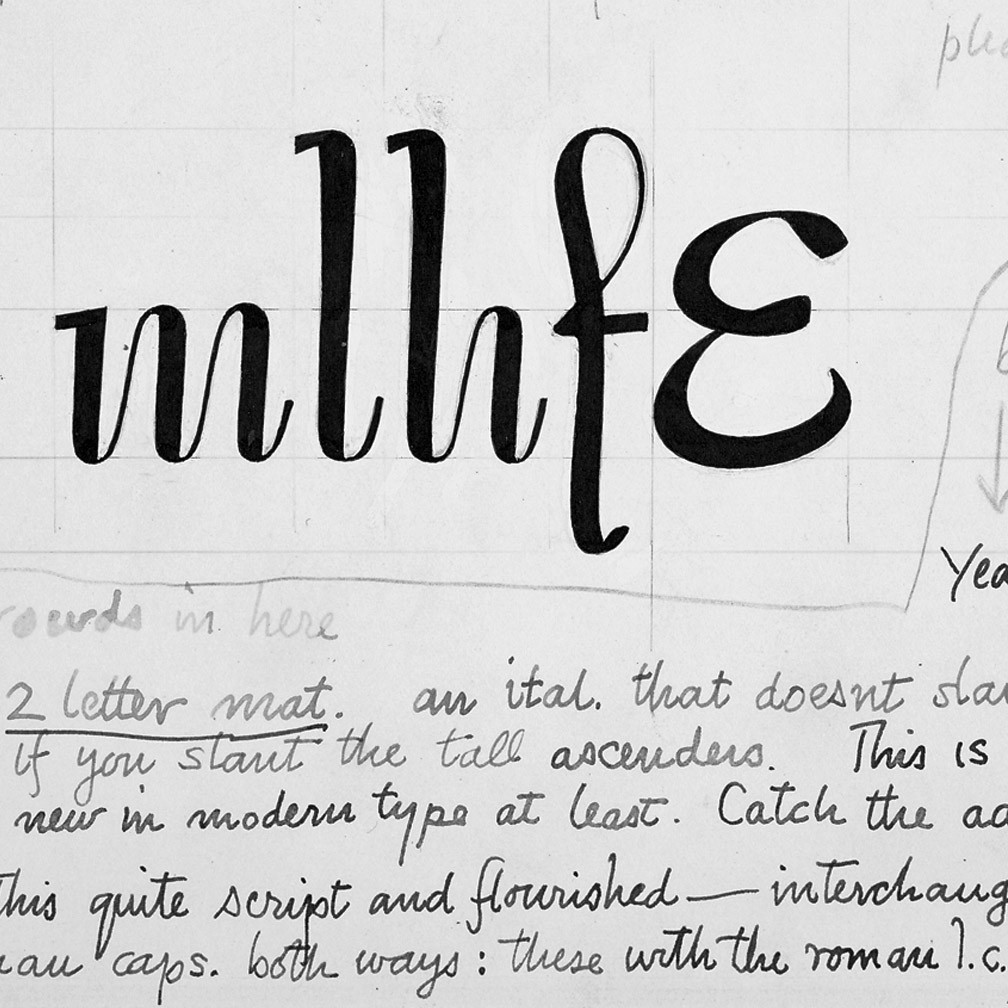 mlhfE
rounds in here
2 letter mat. an ital. that doesnt
if you slant the tall ascenders. This is
new in modern type at least. Catch the
This quite script and flourished — interchang
caps. both ways: these with the roman l.c.